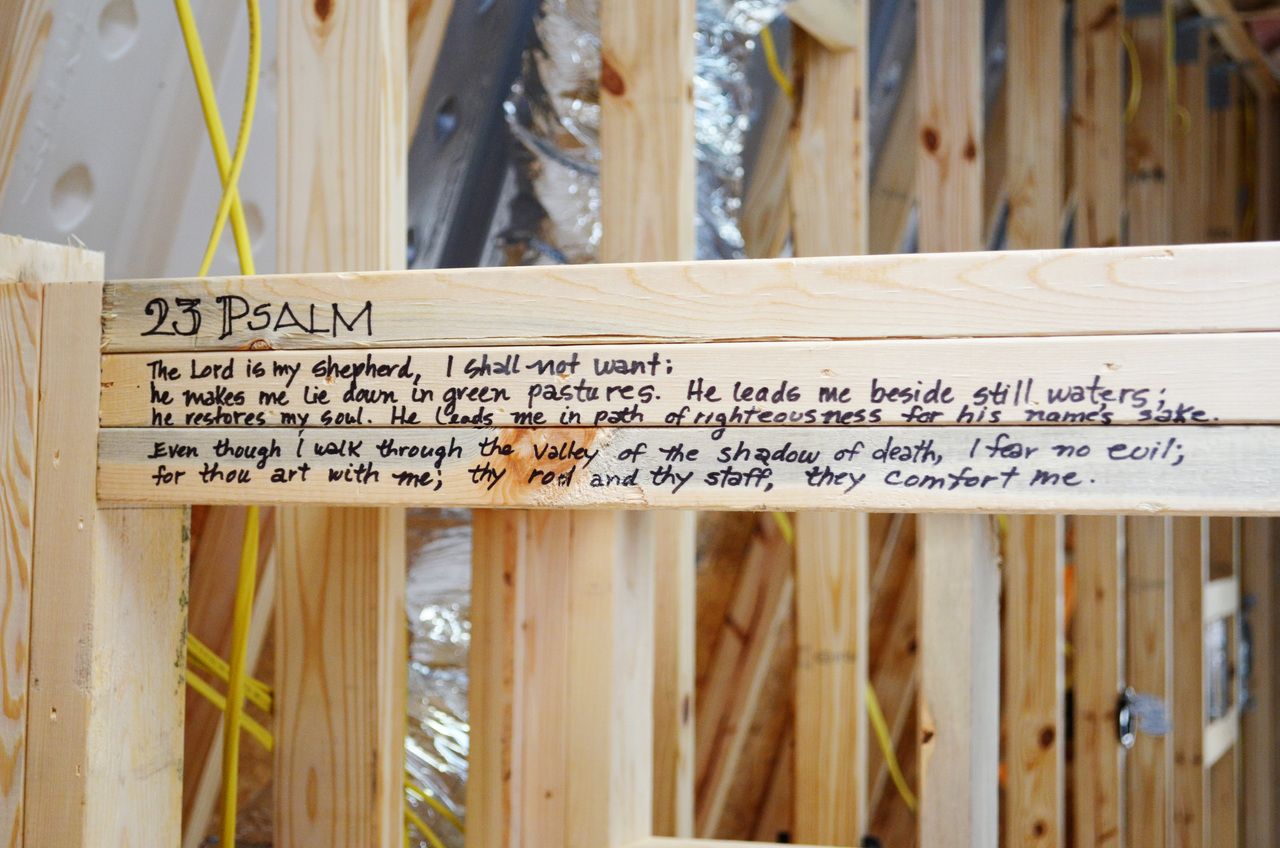 23 PSALM
The Lord is my shepherd, I shall not want;
he makes me lie down in green pastures. He leads me beside still waters;
he restores my soul. He leads me in path of righteousness for his name's sake.
Even though I walk through the valley of the shadow of death, I fear no evil;
for thou art with me; thy rod and thy staff, they comfort me.